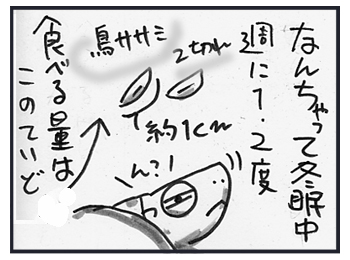 なんちゃって冬眠中
週に1・2度
鳥ササミ
2切れ
約1cm
食べる量は
このていど
ん?!